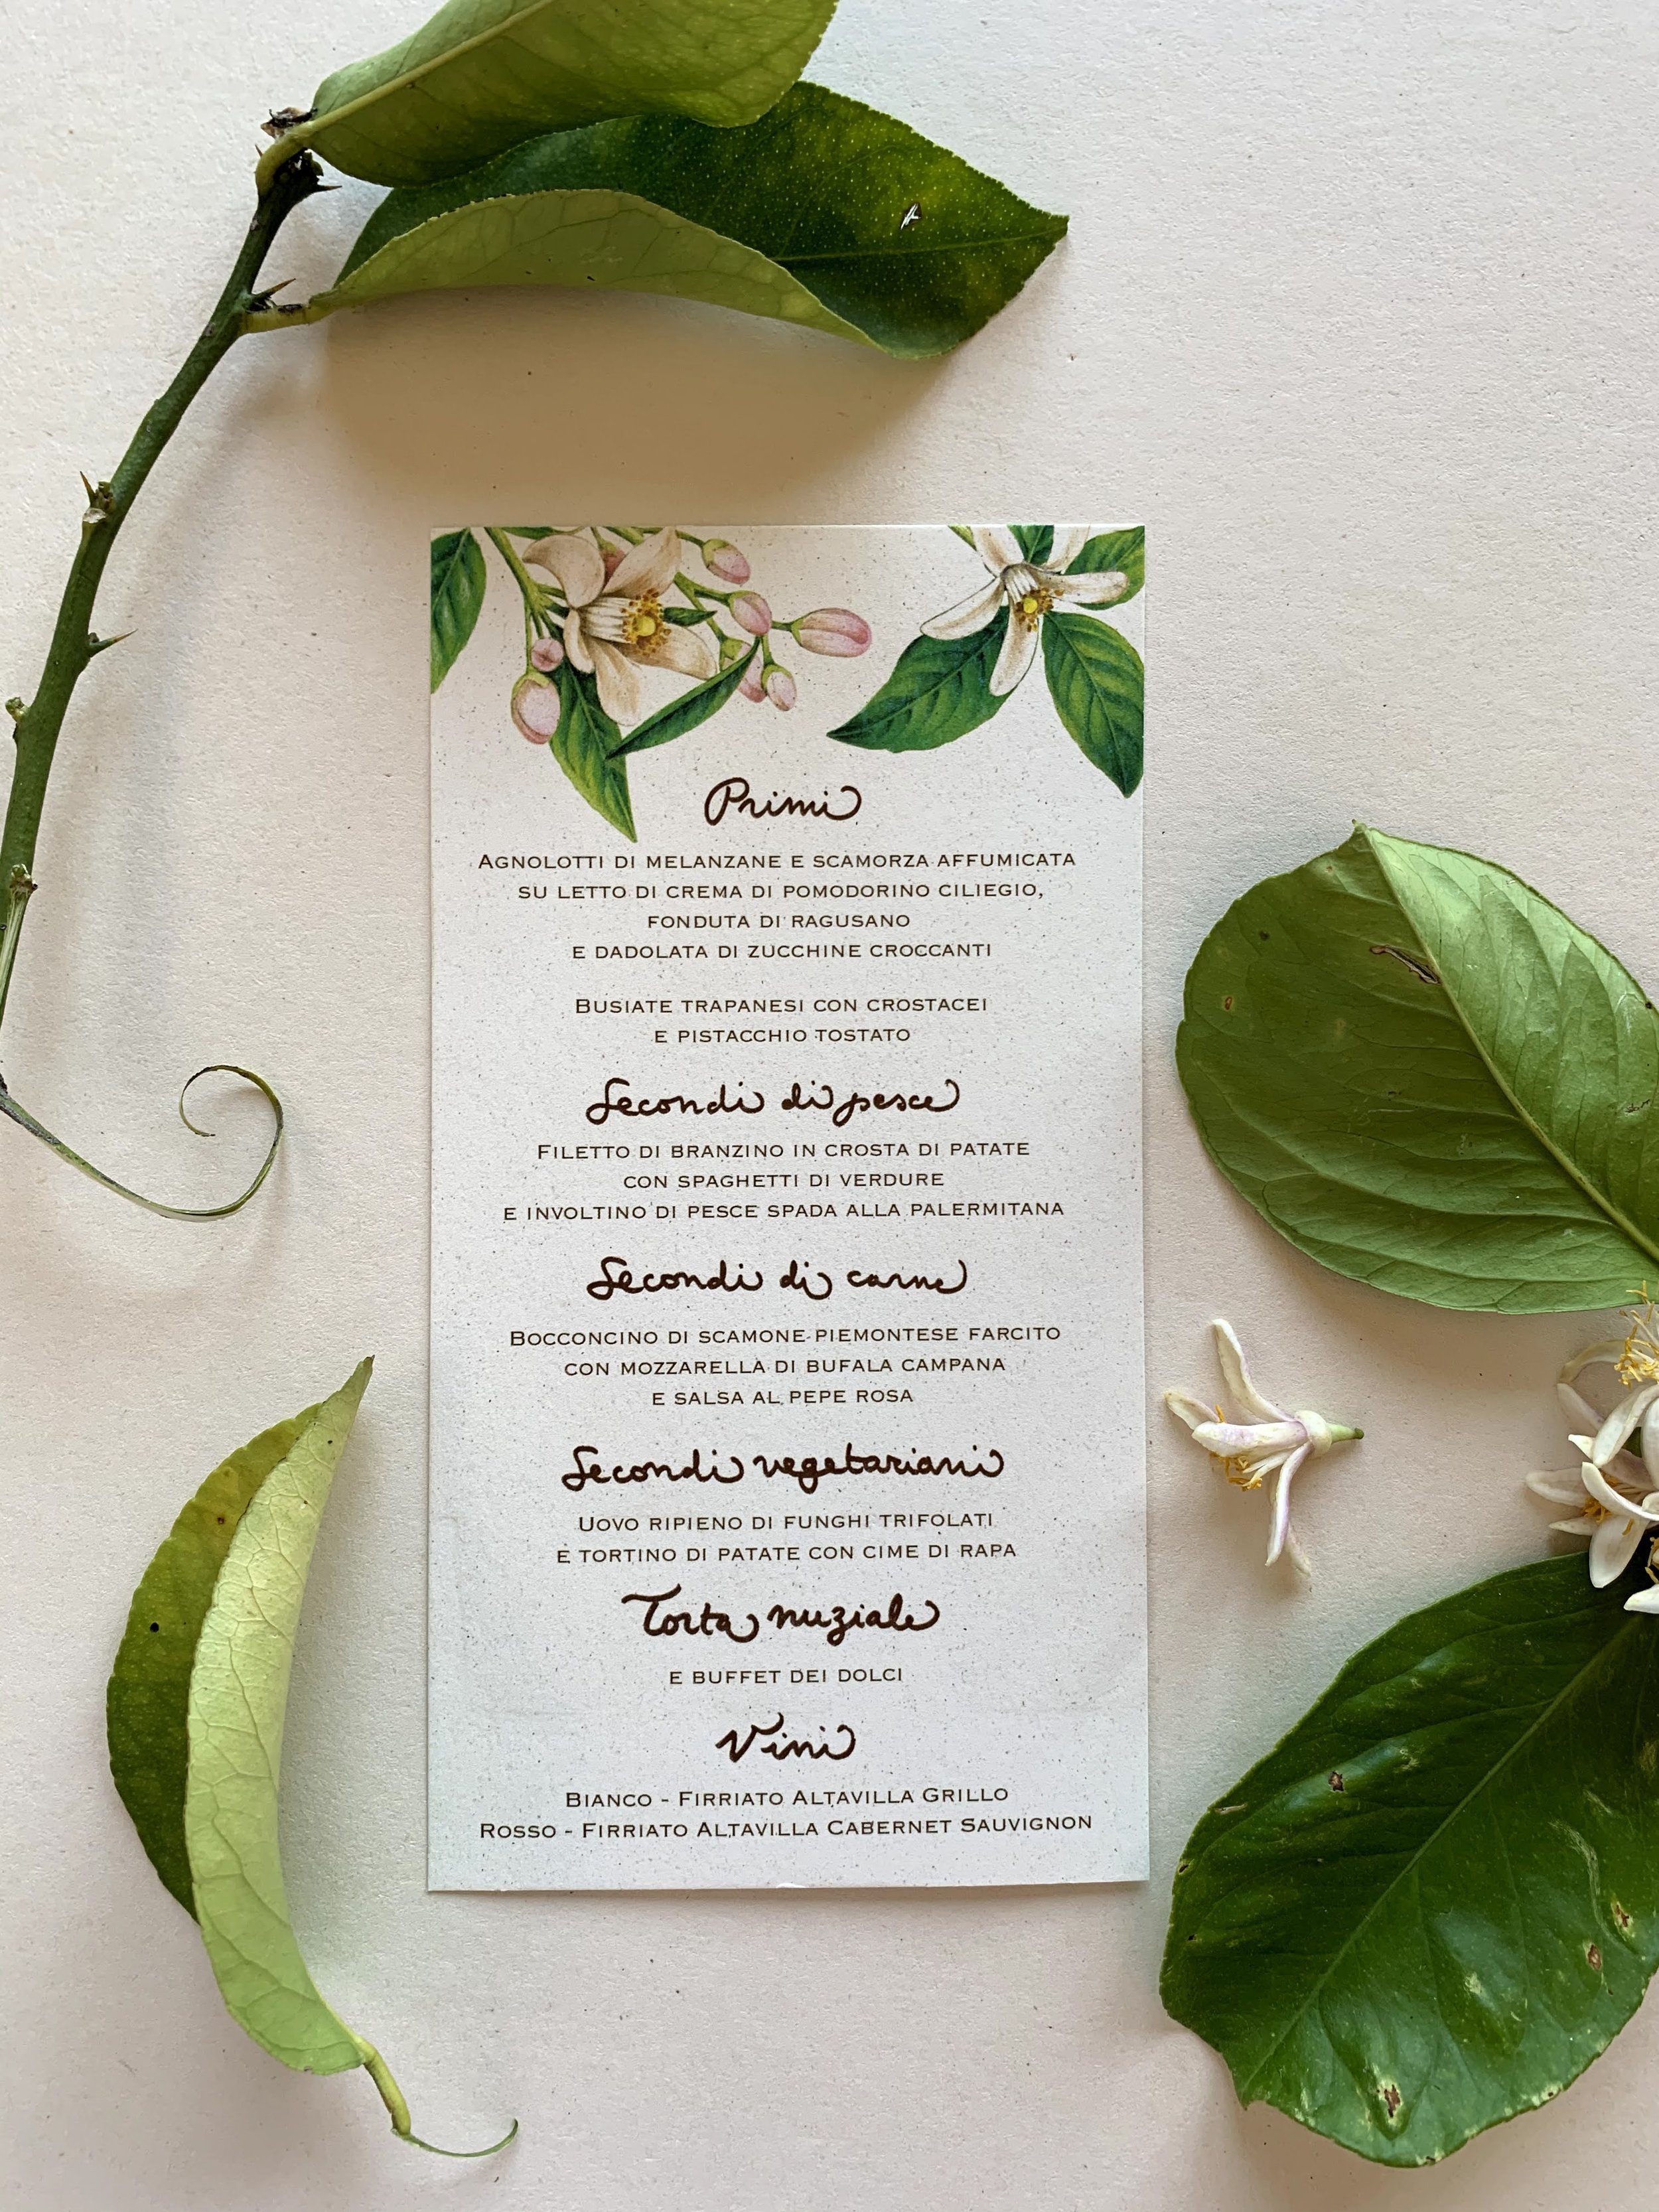 Primi
Agnolotti di melanzane e scamorza affumicata
su letto di crema di pomodorino ciliegio,
fonduta di ragusano
e dadolata di zucchine croccanti
Busiate trapanesi con crostacei
e pistacchio tostato
Secondi di pesce
Filetto di branzino in crosta di patate
con spaghetti di verdure
e involtino di pesce spada alla palermitana
Secondi di carne
Bocconcino di scamone piemontese farcito
con mozzarella di bufala campana
e salsa al pepe rosa
Secondi vegetariani
Uovo ripieno di funghi trifolati
e tortino di patate con cime di rapa
Torta nuziale
e buffet dei dolci
Vini
Bianco - Firriato Altavilla Grillo
Rosso - Firriato Altavilla Cabernet Sauvignon